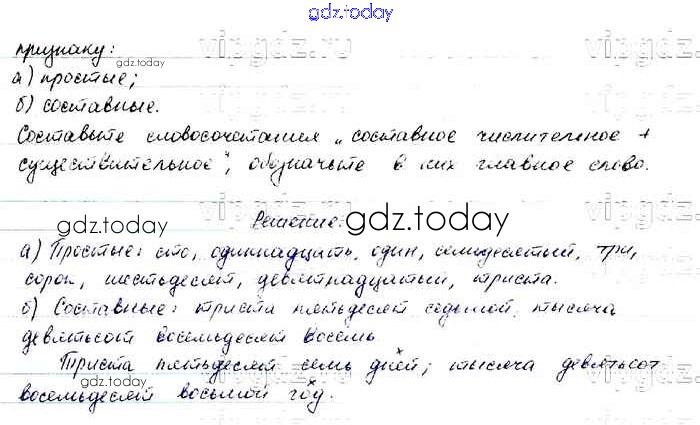 gdz.today
признаку:
gdz.today
vipgdz.ru
vipgdz.ru
а) простые;
б) составные.
Составьте словосочетания „составное числительное +
существительное", обозначьте в них главное слово.
vipgdz.ru
Решение:
gdz.today
gdz.today
а) Простые: сто, одиннадцать, один, семидесятый, три,
сорок, шестьдесят, девятнадцатый, триста.
б) Составные: триста пятьдесят седьмой, тысяча
девятьсот восемьдесят восемь.
Триста пятьдесят семь дней; тысяча девятьсот
gdz.today
vipgdz.ru
восемьдесят восьмой год.